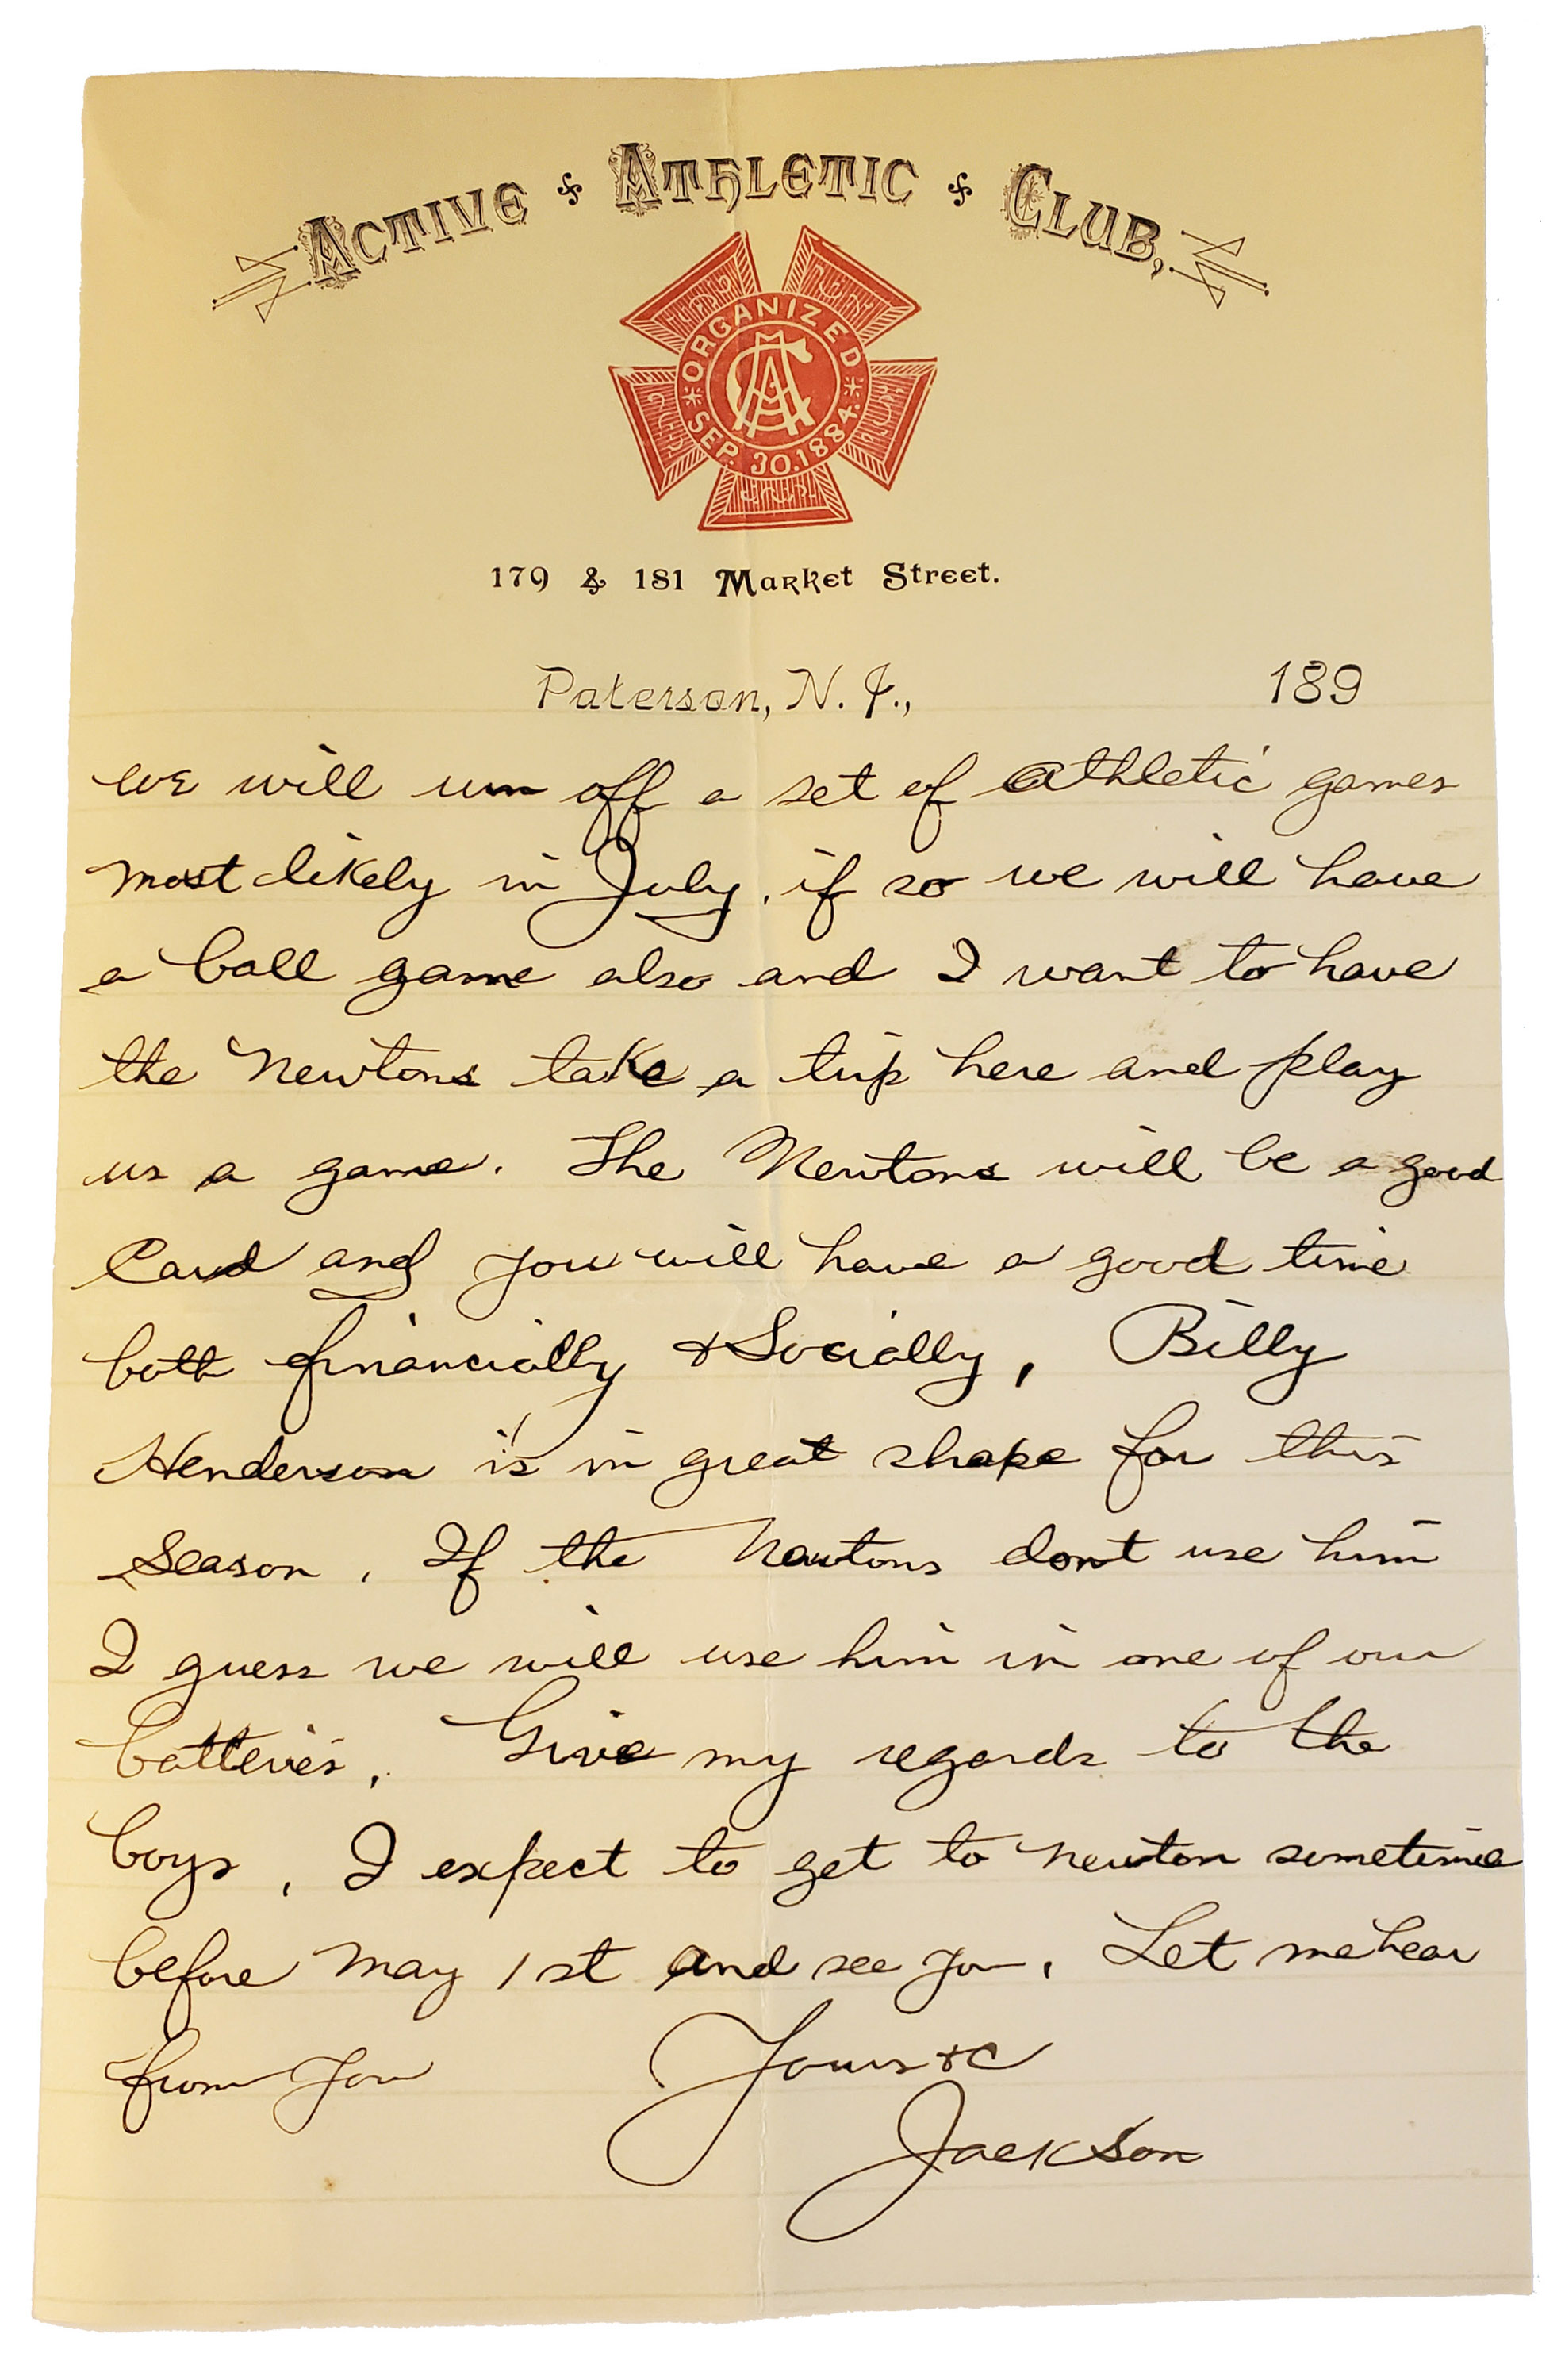 ACTIVE ATHLETIC CLUB,
ORGANIZED
AAC
SEP. 30.1884.
179 & 181 Market Street.
Paterson, N. J., 189
we will run off a set of Athletic games
most likely in July, if so we will have
a ball game also and I want to have
the Newtons take a trip here and play
us a game. The Newtons will be a good
Card and you will have a good time
both financially & Socially, Billy
Henderson is in great shape for this
Season. If the Newtons dont use him
I guess we will use him in one of our
batteries. Give my regards to the
boys, I expect to get to Newton sometime
before May 1st and see you. Let me hear
from you Yours &c
Jackson